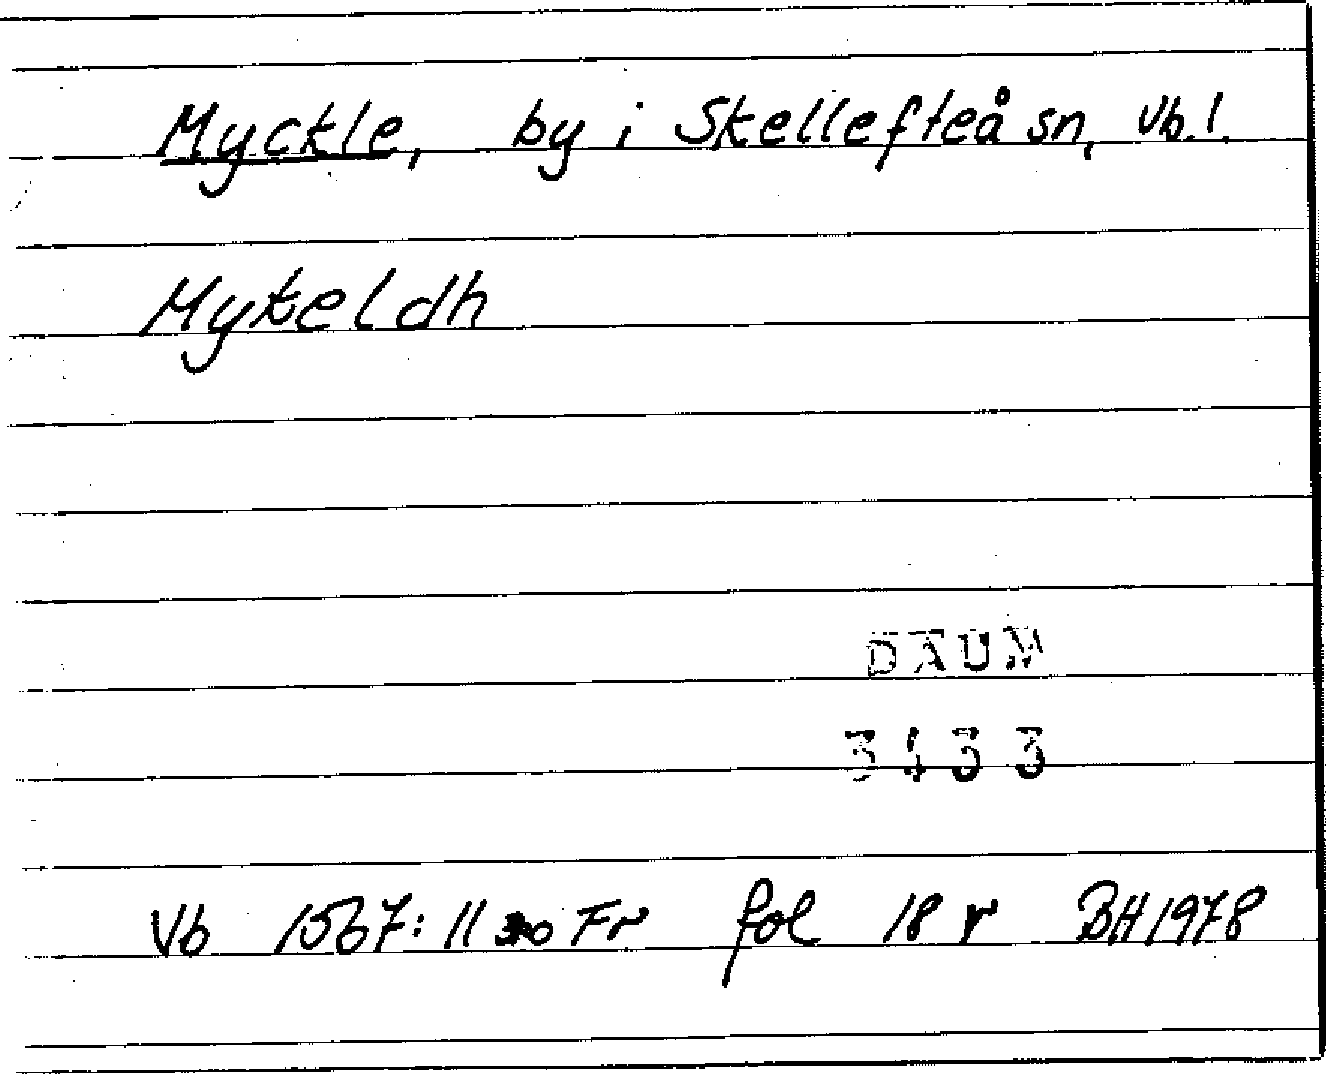 Myckle, by i Skellefteå sn, Vb.l.
Mykeldh
DAUM
3433
Vb 1567:11 Fr fol 18 r BH 1978